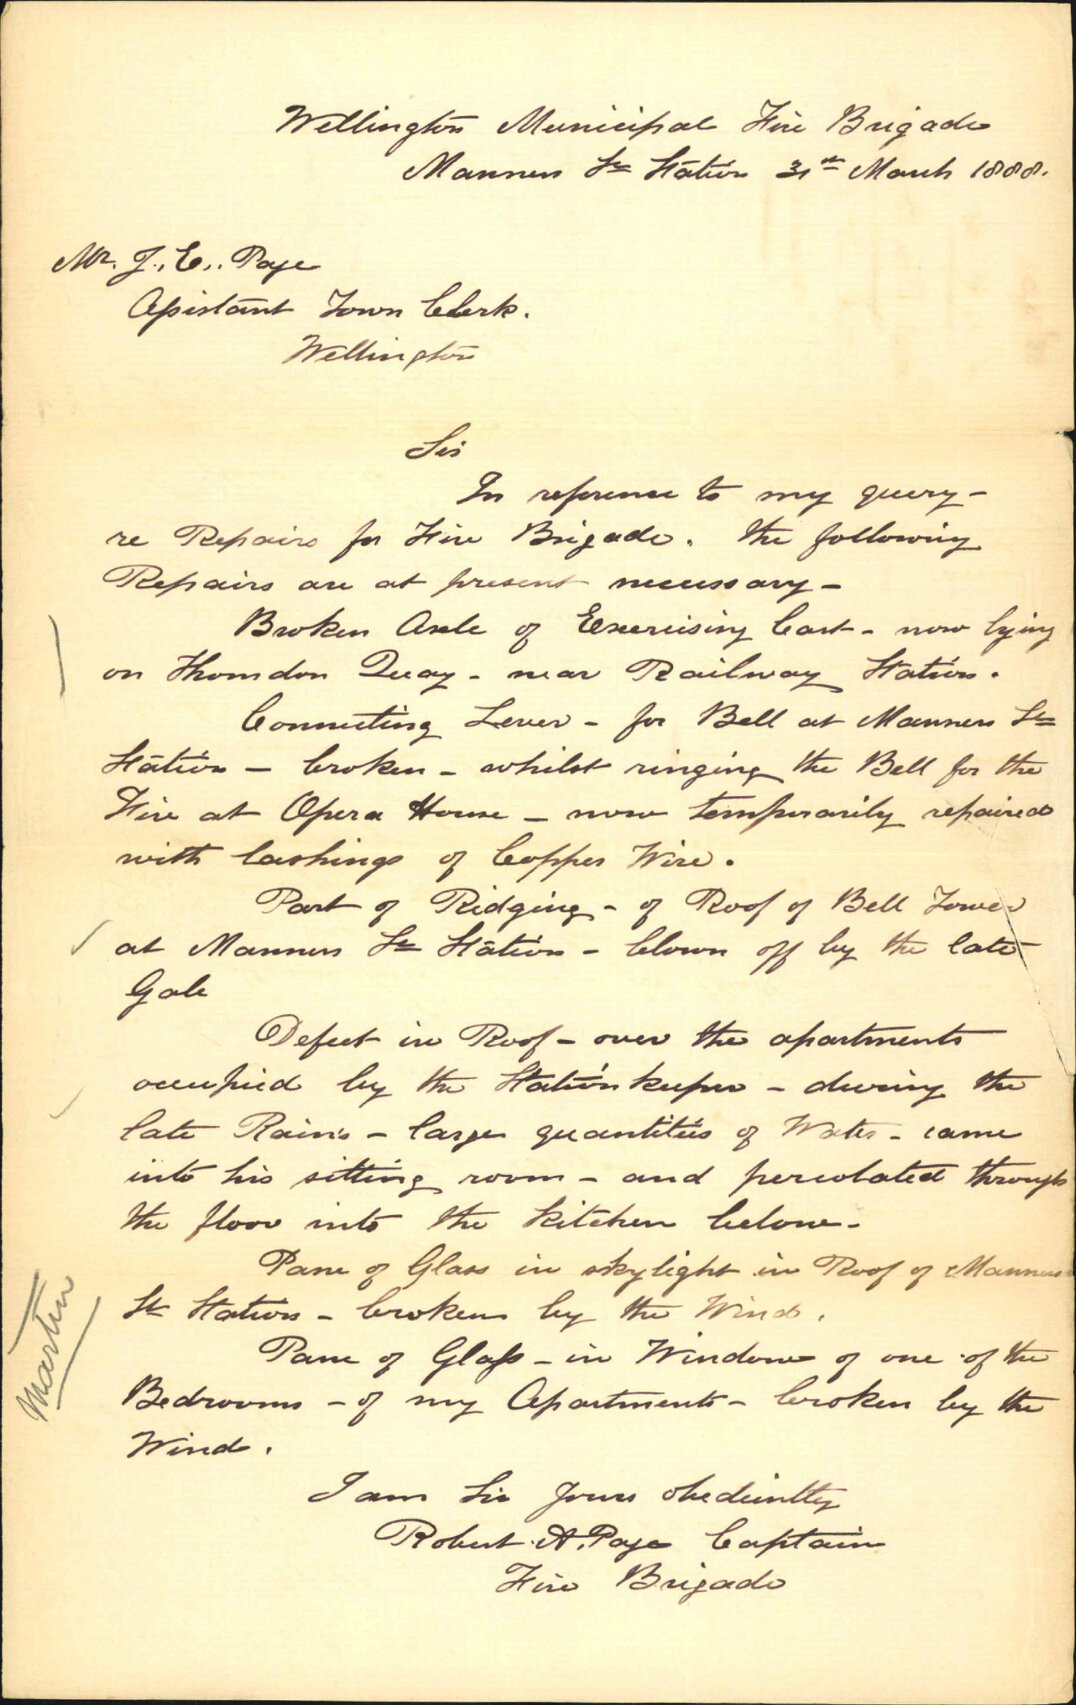 Wellington Municipal Fire Brigade
Manners St Station 31st March 1888.
Mr. J. E. Page
Assistant Town Clerk.
Wellington
Sir
In reference to my query -
re Repairs for Fire Brigade. the following
Repairs are at present necessary -
Broken Axle of Exercising Cart - now lying
on Thorndon Quay - near Railway Station.
Connecting Lever - for Bell at Manners St
Station - broken - whilst ringing the Bell for the
Fire at Opera House - now temporarily repaired
with lashings of Copper Wire.
Part of Ridging - of Roof of Bell Tower
at Manners St Station - blown off by the late
Gale
Defect in Roof - over the apartments
occupied by the Station keeper - during the
late Rains - large quantities of Water - came
into his sitting room - and percolated through
the floor into the kitchen below -
Pane of Glass in skylight in Roof of Manners
St Station - broken by the Wind.
Pane of Glass - in Window of one of the
Bedrooms - of my Apartments - broken by the
Wind.
I am Sir Yours obediently
Robert A. Page Captain
Fire Brigade
Martin